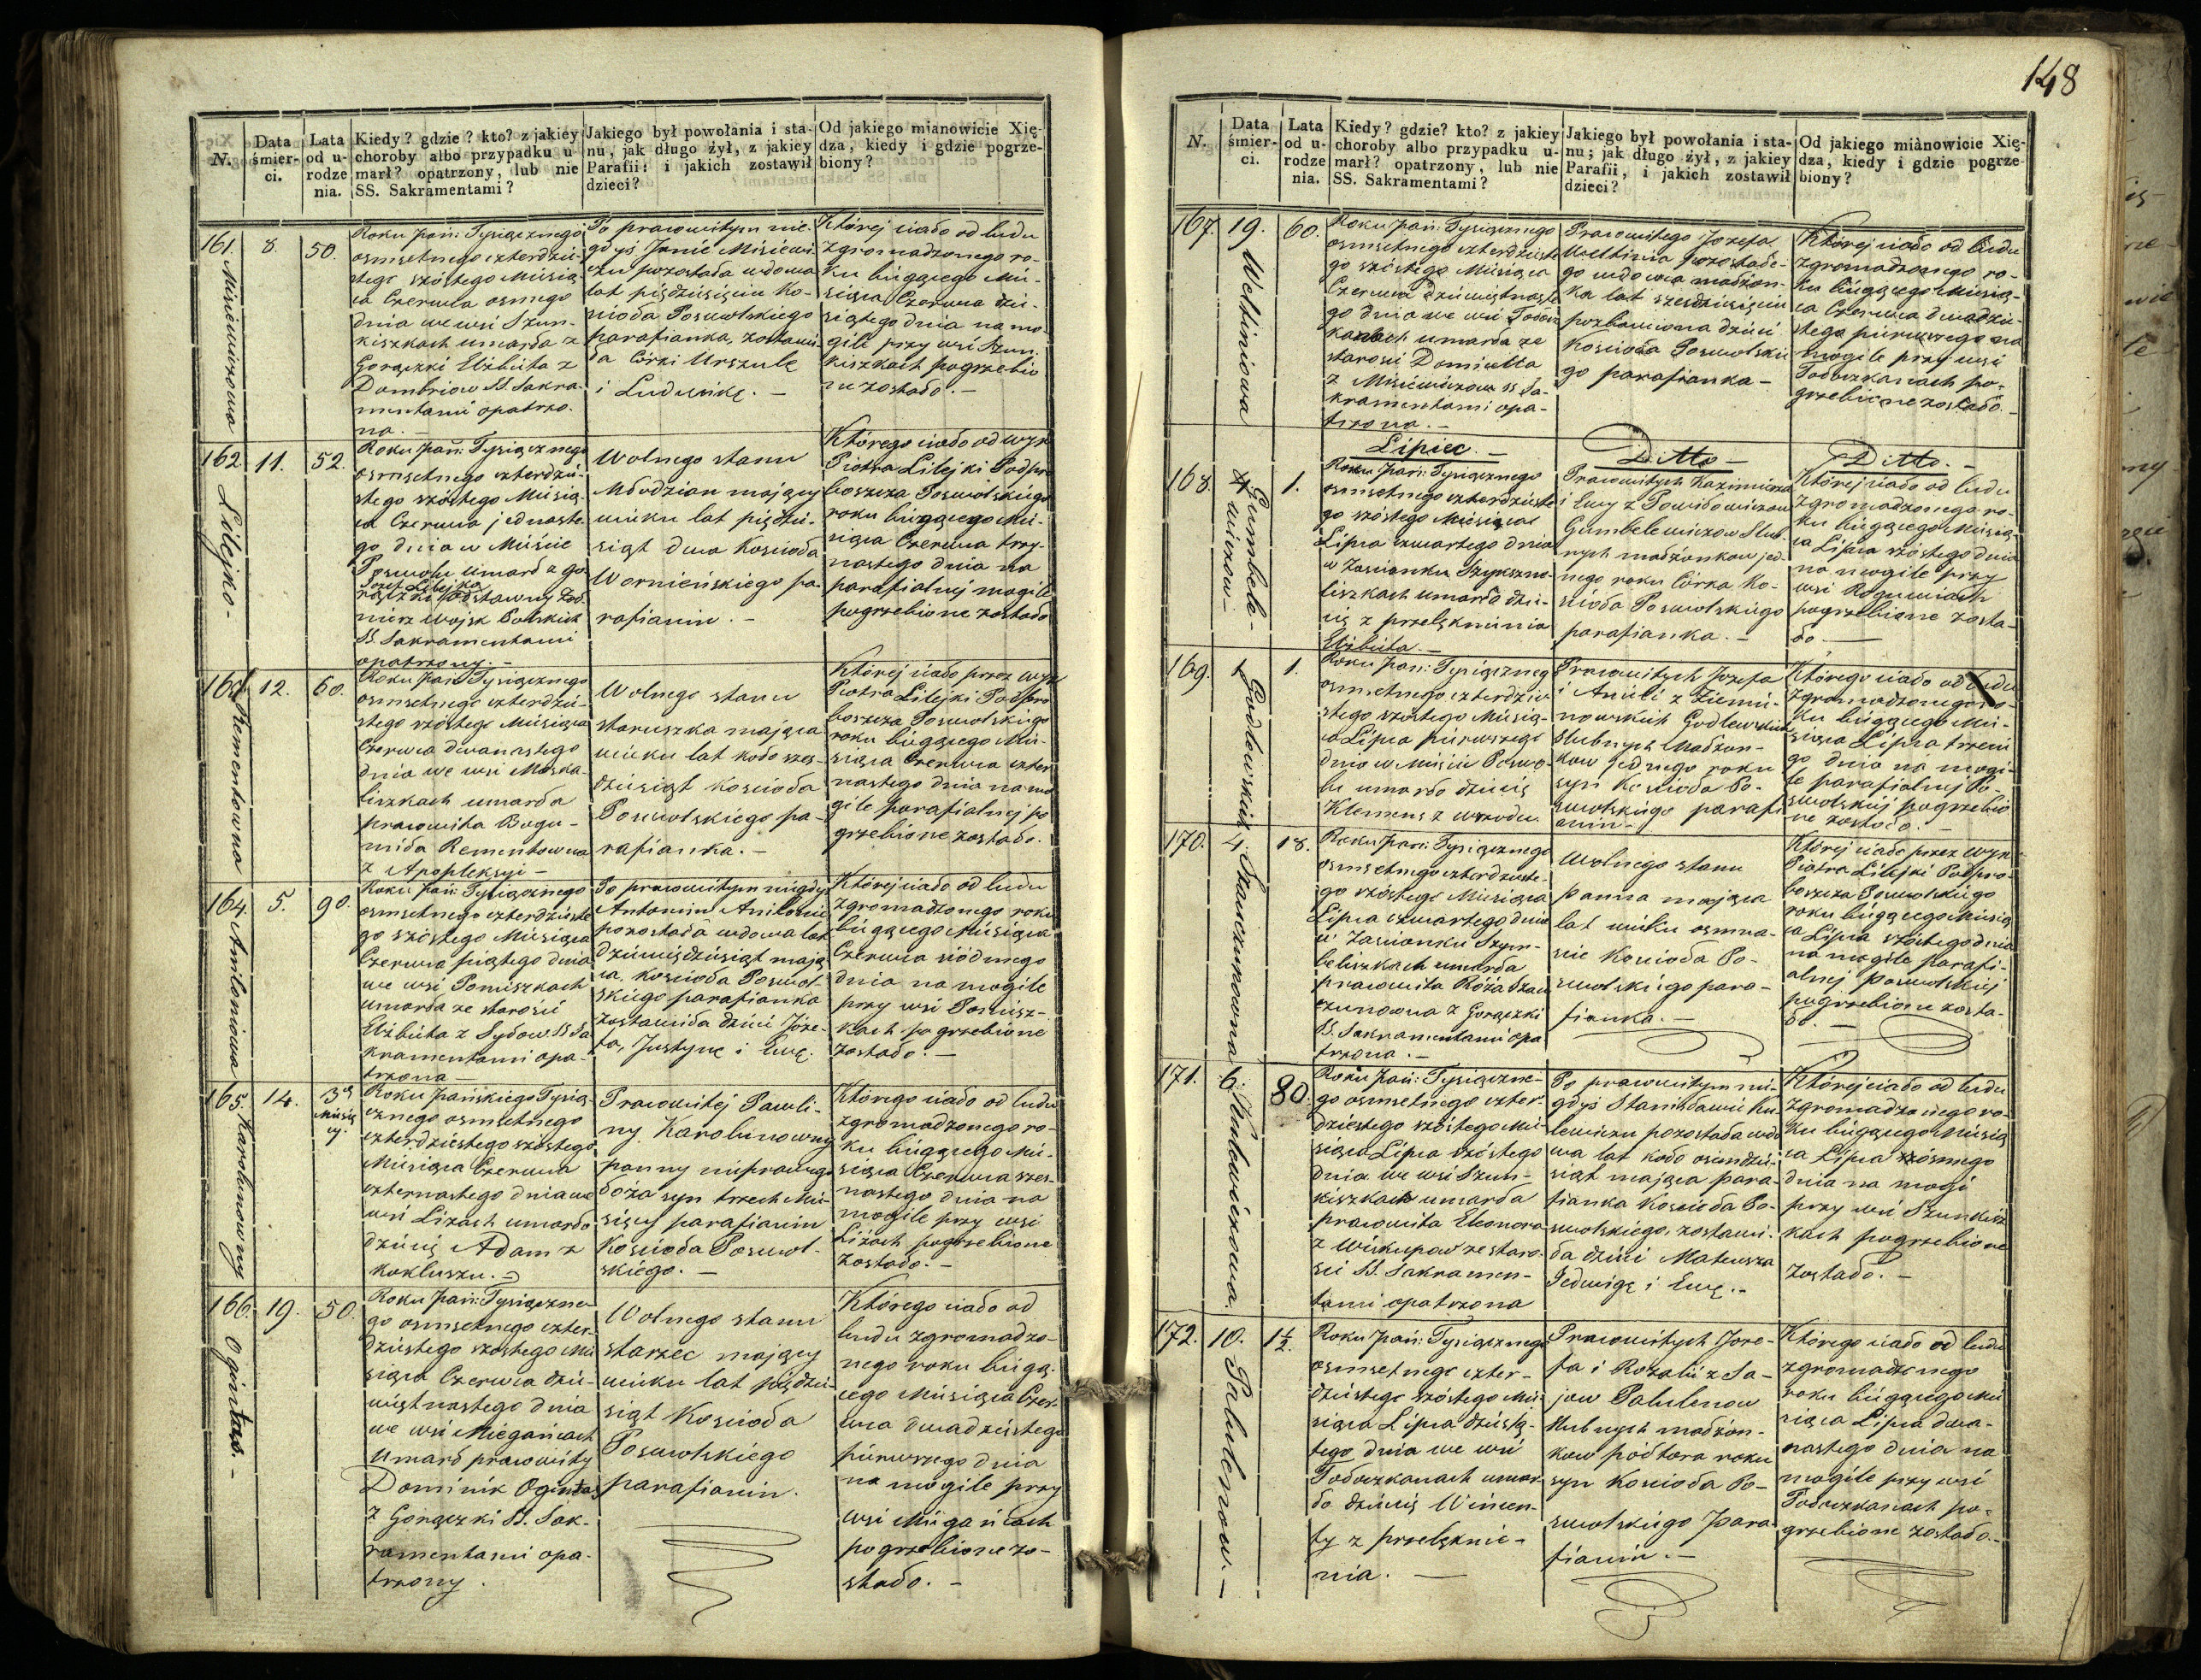 N.
Data śmier-ci.
Lata od u-rodze nia.
Kiedy? gdzie? kto? z jakiey choroby albo przypadku u-marł? opatrzony, lub nie SS. Sakramentami?
Jakiego był powołania i sta-nu, jak długo żył, z jakiey Parafii: i jakich zostawił dzieci?
Od jakiego mianowicie Xię-dza, kiedy i gdzie pogrze-biony?
161. Misiewiczowa
8.
50.
Roku Pań: Tysiącznego
osmsetnego czterdzie-
stego szóstego Miesią
ca Czerwca osmego
dnia we wsi Szun-
kiszkach umarła z
Gorączki Elżbieta z
Dombrow SS. Sakra-
mentami opatrzo-
na. —
Po prawowitym nie-
gdyś Janie Misiewi-
czu pozostała wdowa
lat pięćdziesięciu Ko-
ścioła Poswolskiego
parafianka, zostawi-
ła Córki Urszulę
i Ludwikę. —
Której ciało od ludu
zgromadzonego ro-
ku bieżącego Mie-
siąca Czerwca dzie-
siątego dnia na mo
gile przy wsi Szun-
kiszkach pogrzebio
ne zostało. —
162. Lilejko -
11.
52.
Roku Pań: Tysiącznego
osmsetnego czterdzie-
stego szóstego Miesią-
ca Czerwca jednaste-
go dnia w Mieście
Poswolu umarł z go-
Jozef Lilejko
rączki odstawny Żoł-
nierz Wojsk Polskich
SS. Sakramentami
opatrzony. —
Wolnego stanu
Młodzian mający
wieku lat pięćdzie-
siąt dwa Kościoła
Wornieńskiego pa-
rafianin. —
Którego ciało od Wyx
Piotra Lilejki Podpro
boszcza Poswolskiego
roku bieżącego Mie-
siąca Czerwca trzy-
nastego dnia na
parafialnej mogile
pogrzebione zostało
163. Rementowna
12.
60.
Roku Pań: Tysiącznego
osmsetnego czterdzie-
stego szóstego Miesiąca
Czerwca dwanastego
dnia we wsi Moska-
liszkach umarła
prawowita Bogu-
miła Rementowna
z Apopleksyi —
Wolnego stanu
staruszka mająca
wieku lat koło sześ-
dziesiąt Kościoła
Poswolskiego pa-
rafianka. —
Której ciało przez Wyx
Piotra Lilejki Podpro
boszcza Poswolskiego
roku bieżącego Mie-
siąca Czerwca czter
nastego dnia na mo
gile parafialnej po
grzebione zostało.
164. Aniloniowa
5.
90.
Roku Pań: Tysiącznego
osmsetnego czterdzieste
go szóstego Miesiąca
Czerwca piątego dnia
we wsi Pomiszkach
umarła ze starości
Elżbieta z Sydow SS Sa
kramentami opa-
trzona —
Po prawowitym niegdyś
Antonim Aniloniu
pozostała wdowa lat
dziewięćdziesiąt mają
ca, kościoła Poswol
skiego parafianka
zostawiła dzieci Józe-
fa, Justynę i Ewę.
Której ciało od ludu
zgromadzonego roku
bieżącego Miesiąca
Czerwca siódmego
dnia na mogile
przy wsi Pomisz-
kach pogrzebione
zostało. —
165. Karolinowny
14.
3ch Miesię cy.
Roku Pańskiego Tysią-
cznego osmsetnego
czterdziestego szóstego
Miesiąca Czerwca
czternastego dnia we
wsi Liżach umarło
dziecię Adam z
kokluszu. —
Prawowitej Pawli-
ny Karolinowny
panny nieprawego
łoża syn trzech Mie-
sięcy parafianin
Kościoła Poswol-
skiego. —
Którego ciało od ludu
zgromadzonego ro-
ku bieżącego Mie-
siąca Czerwca szes-
nastego dnia na
mogile przy wsi
Liżach pogrzebione
zostało. —
166. Ogintas. -
19.
50.
Roku Pań: Tysiączne-
go osmsetnego czter-
dziestego szóstego Mie
siąca Czerwca dzie-
więtnastego dnia
we wsi Mieganiach
umarł prawowity
Dominik Ogintas
z Gorączki SS. Sak-
ramentami opa-
trzony.
Wolnego stanu
starzec mający
wieku lat pięćdzie-
siąt Kościoła
Poswolskiego
parafianin.
Którego ciało od
ludu zgromadzo-
nego roku bieżą-
cego Miesiąca Czer-
wca dwadziestego
pierwszego dnia
na mogile przy
wsi Mieganiach
pogrzebione zo-
stało. —
148
N.
Data śmier-ci.
Lata od u-rodze nia.
Kiedy? gdzie? kto? z jakiey choroby albo przypadku u-marł? opatrzony, lub nie SS. Sakramentami?
Jakiego był powołania i sta-nu; jak długo żył, z jakiey Parafii, i jakich zostawił dzieci?
Od jakiego miànowicie Xię-dza, kiedy i gdzie pogrze-biony?
167. Weltiniowa
19.
60.
Roku Pań: Tysiącznego
osmsetnego czterdzieste
go szóstego Miesiąca
Czerwca dziewiętnaste
go dnia we wsi Tołocz
kanach umarła ze
starości Domicella
z Misiewiczow SS Sa-
kramentami opa-
trzona. —
Prawowitego Jozefa
Weltinia pozostałe-
go wdowca małżon-
ka lat sześdziesięciu
pozbawiona dzieci
Kościoła Poswolskie
go parafianka —
Której ciało od ludu
zgromadzonego ro-
ku bieżącego Miesią-
ca Czerwca dwadzie-
stego pierwszego na
mogile przy wsi
Tołoczkanach po-
grzebione zostało. —
Lipiec. —
Ditto —
Ditto. —
168. Gumbele-wiczow —
4
1.
Roku Pań: Tysiącznego
osmsetnego czterdzieste
go szóstego Miesiąca
Lipca czwartego dnia
w Zaścianku Szykszno-
liszkach umarło dzie-
cię z przelęknienia
Elżbieta. —
Prawowitych Kazimierza
i Ewy z Powidowiczow
Gumbelewiczow Slub-
nych małżonkow jed-
nego roku Córka Ko-
ścioła Poswolskiego
parafianka. —
Której ciało od ludu
zgromadzonego ro-
ku bieżącego Miesią-
ca Lipca szóstego dnia
na mogile przy
wsi Roguwiach
pogrzebione zosta-
ło. —
169. Godlewskich
1
1.
Roku Pań: Tysiączneg
osmsetnego czterdzie
stego szóstego Miesią-
ca Lipca pierwszego
dnia w Mieście Poswo-
lu umarło dziecię
Klemens z wrzodu.
Prawowitych Jozefa
i Anieli z Ziemie-
nowskich Godlewskich
Slubnych Małżon-
kow jednego roku
syn Kościoła Po-
swolskiego parafi
anin —
Którego ciało od ludu
zgromadzonego ro-
ku bieżącego Mie-
siąca Lipca trzecie
go dnia na mogi-
le parafialnej Po-
swolskiej pogrzebio
ne zostało. —
170. Szarczunowna
4.
18.
Roku Pań: Tysiącznego
osmsetnego czterdzieste-
go szóstego Miesiąca
Lipca czwartego dnia
w Zaścianku Szym-
beliszkach umarła
prawowita Róża Szar
czunowna z Gorączki
SS. Sakramentami opa
trzona. —
Wolnego stanu
Panna mająca
lat wieku osmna-
ście Kościoła Po-
swolskiego para-
fianka. —
Której ciało przez Wyx
Piotra Lilejki Podpro-
boszcza Poswolskiego
roku bieżącego Miesią
ca Lipca szóstego dnia
na mogile parafi-
alnej Poswolskiej
pogrzebione zosta-
ło. —
171. Kulewiczowa.
6.
80.
Roku Pań: Tysiączne-
go osmsetnego czter-
dziestego szóstego Mie-
siąca Lipca szóstego
dnia we wsi Szun-
kiszkach umarła
prawowita Eleonora
z Wiskupow ze staro-
ści SS. Sakramen-
tami opatrzona
Po prawowitym nie-
gdyś Stanisławie Ku
lewiczu pozostała wdo
wa lat koło osimdzie-
siąt mająca para-
fianka Kościoła Po-
swolskiego, zostawi-
ła dzieci Mateusza
Jedwigę i Ewę. —
Której ciało od ludu
zgromadzonego ro-
ku bieżącego Miesią
ca Lipca osmego
dnia na mogi
przy wsi Szunkisz
kach pogrzebione
zostało. —
172. Palulenow. —
10.
1½.
Roku Pań: Tysiącznego
osmsetnego czter-
dziestego szóstego Mie
siąca Lipca dziesią-
tego dnia we wsi
Tołoczkanach umar-
ło dziecię Wincen-
ty z przelęknie-
nia. —
Prawowitych Joze-
fa i Rozalii z Sa-
jow Palulenow
slubnych małżon-
kow półtora roku
syn Kościoła Po-
swolskiego Para
fianin. —
Którego ciało od ludu
zgromadzonego
roku bieżącego Mie
siąca Lipca dwa-
nastego dnia na
mogile przy wsi
Tołoczkanach po-
grzebione zostało. —